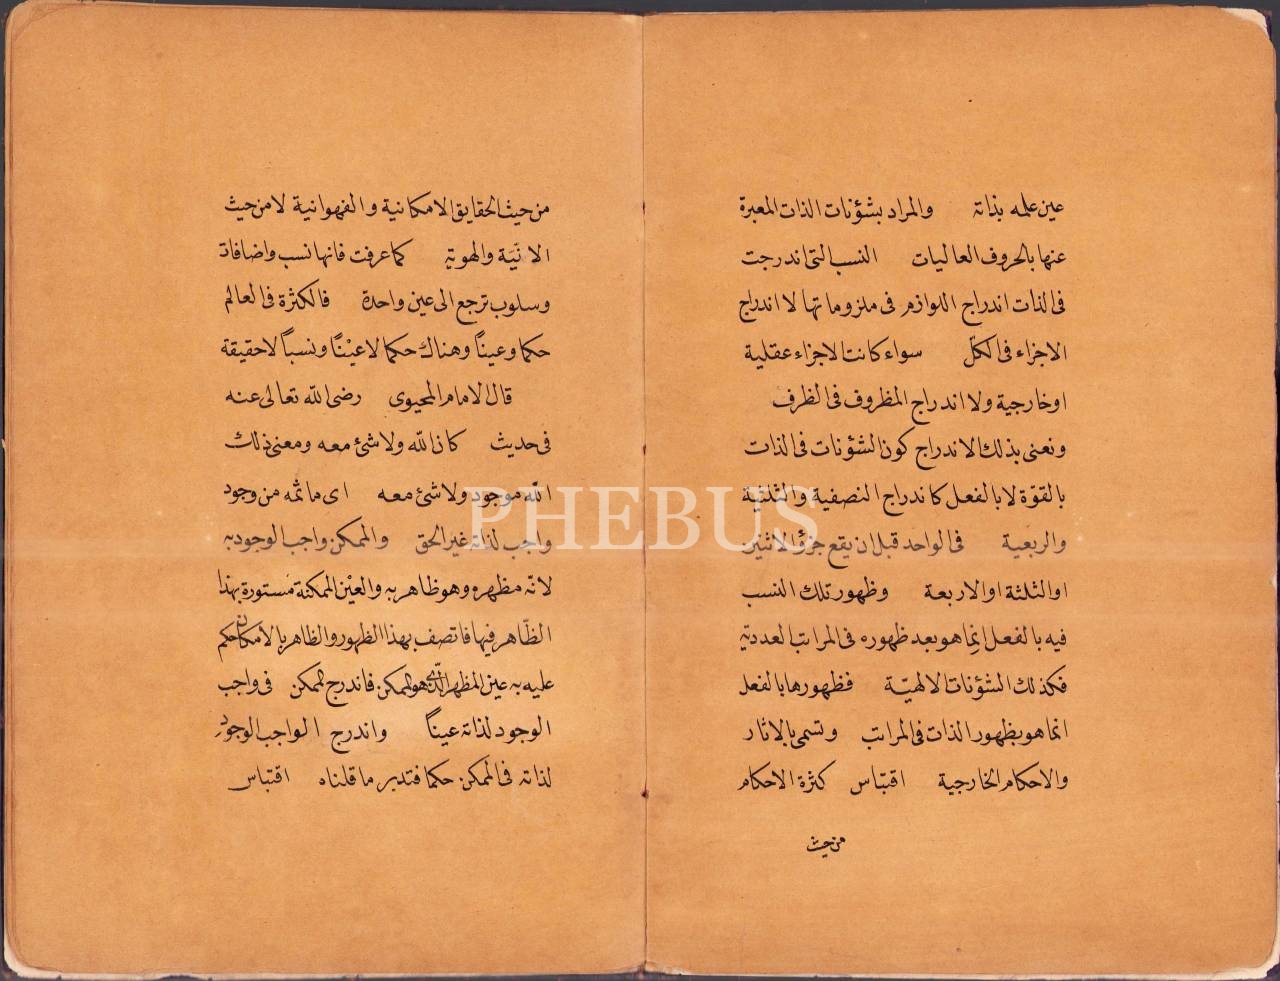 عين علمه بذاته والمراد بشؤنات الذات المعبرة
عنها بالحروف العاليات النسب التى اندرجت
فى الذات اندراج اللوازم فى ملزوماتها لا اندراج
الاجزاء فى الكلّ سواء كانت الاجزاء عقلية
او خارجية ولا اندراج المظروف فى الظرف
ونعنى بذلك الاندراج كون الشؤنات فى الذات
بالقوّة لا بالفعل كاندراج النصفية والثلثية
والربعية فى الواحد قبل ان يقع جزؤ الاثنين
او الثلثة او الاربعة وظهور تلك النسب
فيه بالفعل انما هو بعد ظهوره فى المراتب العددية
فكذلك الشؤنات الالهيّة فظهورها بالفعل
انما هو بظهور الذات فى المراتب وتسمى بالاثار
والاحكام الخارجية اقتباس كثرة الاحكام
من حيث
من حيث الحقايق الامكانية والفهوانية لا من حيث
الانيّة والهوية كما عرفت فانها نسب واضافات
وسلوب ترجع الى عين واحدة فالكثرة فى العالم
حكما وعيناً وهناك حكما لا عيْناً ونسباً لا حقيقة
قال الامام المحيوى رضى الله تعالى عنه
فى حديث كان الله ولا شئ معه ومعنى ذلك
الله موجود ولا شئ معه اى ما ثمه من وجود
واجب لذاته غير الحق والممكن واجب الوجود به
لانّه مظهره وهو ظاهر به والعين الممكنة مستورة بهذا
الظّاهر فيها فاتصف بهذا الظهور والظاهر بالامكان حكم
عليه به عين المظهر الّذى هو الممكن فاندرج الممكن فى واجب
الوجود لذاته عيناً واندرج الواجب الوجود
لذاته فى الممكن حكما فتدبر ما قلناه اقتباس
PHEBUS